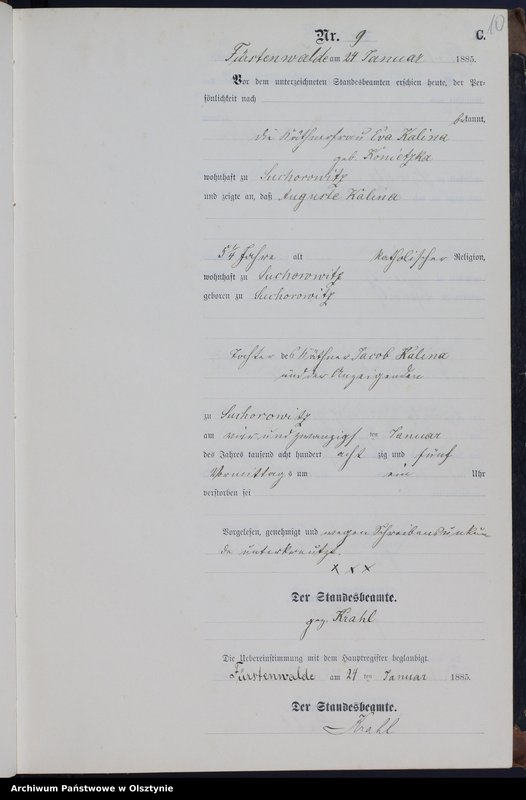 10
Nr. 9 C.
Fürstenwalde am 24 Januar 1885.
Vor dem unterzeichneten Standesbeamten erschien heute, der Per-
sönlichkeit nach
bekannt,
die Käthnerfrau Eva Kalina
geb. Konietzka
wohnhaft zu Suchorowitz
und zeigte an, daß Auguste Kalina
5 1/4 Jahre alt katholischer Religion,
wohnhaft zu Suchorowitz
geboren zu Suchorowitz
Tochter des Käthner Jacob Kalina
und der Anzeigenden
zu Suchorowitz
am vier und zwanzigsten Januar
des Jahres tausend acht hundert acht zig und fünf
Vormittags um ein Uhr
verstorben sei
Vorgelesen, genehmigt und wegen Schreibensunkun
de unterkreutzt.
x x x
Der Standesbeamte.
gez. Krahl
Die Uebereinstimmung mit dem Hauptregister beglaubigt.
Fürstenwalde am 24 ten Januar 1885.
Der Standesbeamte.
Krahl
Archiwum Państwowe w Olsztynie